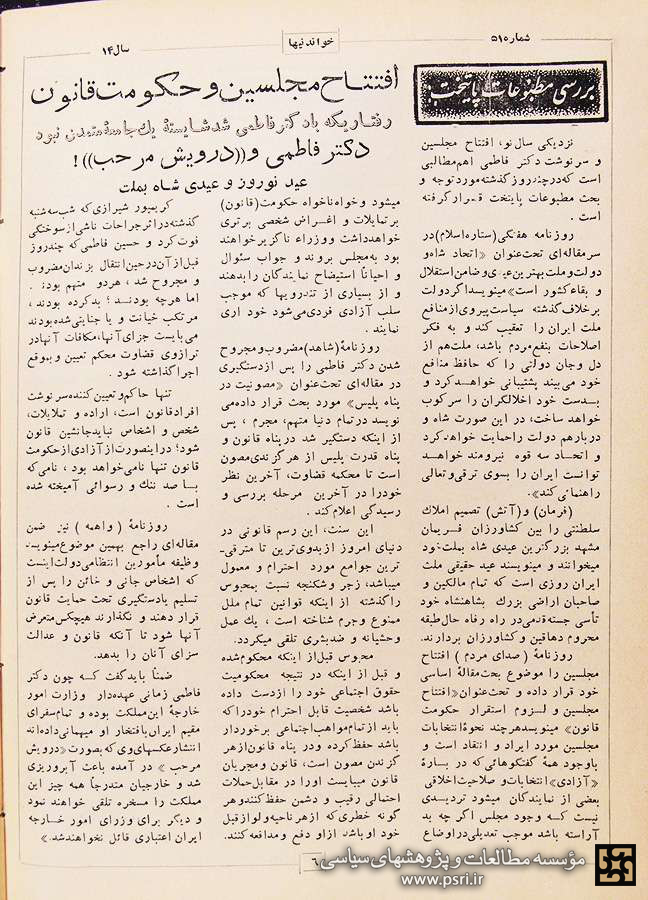 شماره ۵۱۵
خواندنیها
سال ۱۴
بررسی مطبوعات پایتخت:
افتتاح مجلسین و حکومت قانون
رفتاریکه با دکتر فاطمی شد شایستهٔ یك جامعهٔ متمدن نبود
دکتر فاطمی و ((درویش مرحب))!
عید نوروز و عیدی شاه بملت
نزدیکی سال نو، افتتاح مجلسین
و سرنوشت دکتر فاطمی اهم مطالبی
است که در چند روز گذشته مورد توجه و
بحث مطبوعات پایتخت قرار گرفته
است.
روزنامه هفتگی (ستاره اسلام) در
سرمقاله‌ای تحت عنوان «اتحاد شاه و
دولت و ملت بهترین عیدی و ضامن استقلال
و بقاء کشور است» مینویسد اگر دولت
بر خلاف گذشته سیاست پیروی از منافع
ملت ایران را تعقیب کند و به فکر
اصلاحات بنفع مردم باشد، ملت هم از
دل و جان دولتی را که حافظ منافع
خود می بیند پشتیبانی خواهد کرد و
بدست خود اخلالگران را سرکوب
خواهد ساخت، در این صورت شاه و
دربار هم دولت را حمایت خواهد کرد
و اتحاد سه قوه نیرومند خواهد
توانست ایران را بسوی ترقی و تعالی
راهنمائی کند».
(فرمان) و (آتش) تصمیم املاك
سلطنتی را بین کشاورزان فریمان
مشهد بزرگترین عیدی شاه بملت خود
میخوانند و مینویسند عید حقیقی ملت
ایران روزی است که تمام مالکین و
صاحبان اراضی بزرك بشاهنشاه خود
تأسی جسته قدمی در راه رفاه حال طبقه
محروم دهاقین و کشاورزان بردارند.
روزنامهٔ (صدای مردم) افتتاح
مجلسین را موضوع بحث مقالهٔ اساسی
خود قرار داده و تحت عنوان «افتتاح
مجلسین و لزوم استقرار حکومت
قانون» مینویسد هر چند نحوهٔ انتخابات
مجلسین مورد ایراد و انتقاد است و
باوجود همهٔ گفتگوهائی که در بارهٔ
«آزادی» انتخابات و صلاحیت اخلاقی
بعضی از نمایندگان میشود تردیدی
نیست که وجود مجلس اگر چه بد
آراسته باشد موجب تعدیلی در اوضاع
میشود و خواه ناخواه حکومت (قانون)
بر تمایلات و اغراض شخصی برتری
خواهد داشت و وزراء ناگزیر خواهند
بود به مجلس بروند و جواب سئوال
و احیاناً استیضاح نمایندگان را بدهند
و از بسیاری از تندرویها که موجب
سلب آزادی فردی می شود خود داری
نمایند.
روزنامهٔ (شاهد) مضروب و مجروح
شدن دکتر فاطمی را پس از دستگیری
در مقاله‌ای تحت عنوان «مصونیت در
پناه پلیس» مورد بحث قرار داده می
نویسد در تمام دنیا متهم، مجرم، پس
از اینکه دستگیر شد در پناه قانون و
پناه قدرت پلیس از هر گزندی مصون
است تا محکمه قضاوت، آخرین نظر
خود را در آخرین مرحله بررسی و
رسیدگی اعلام کند.
این سنت، این رسم قانونی در
دنیای امروز از بدوی ترین تا مترقی-
ترین جوامع مورد احترام و معمول
میباشد، زجر و شکنجه نسبت بمحبوس
را گذشته از اینکه قوانین تمام ملل
ممنوع و جرم شناخته است، یك عمل
وحشیانه و ضد بشری تلقی میگردد.
محبوس قبل از اینکه محکوم شده
و قبل از اینکه در نتیجه محکومیت
حقوق اجتماعی خود را از دست داده
باشد شخصیت قابل احترام خود را که
باید از تمام مواهب اجتماعی برخوردار
باشد حفظ کرده و در پناه قانون از هر
گزندی مصون است، قانون و مجریان
قانون میبایست او را در مقابل حملات
احتمالی رقیب و دشمن حفظ کنند و هر
گونه خطری که از هر ناحیه و لو از قبل
خود او باشد از او دفع و مدافعه کنند.
کریمپور شیرازی که شب سه شنبه
گذشته در اثر جراحات ناشی از سوختگی
فوت کرد و حسین فاطمی که چند روز
قبل از آن در حین انتقال بزندان مضروب
و مجروح شد، هر دو متهم بودند.
اما هر چه بودند؛ بد کرده بودند،
مرتکب خیانت و یا جنایتی شده بودند
می بایست جزای آنها، مکافات آنها در
ترازوی قضاوت محکم تعیین و بموقع
اجرا گذاشته شود.
تنها حاکم و تعیین کننده سرنوشت
افراد قانون است، اراده و تمایلات،
شخص و اشخاص نباید جانشین قانون
شود؛ در اینصورت از آزادی از حکومت
قانون تنها نامی خواهد بود، نامی که
با صد ننك و رسوائی آمیخته شده
است.
روزنامهٔ (واهمه) نیز ضمن
مقاله‌ای راجع بهمین موضوع مینویسد
وظیفه مأمورین انتظامی دولت اینست
که اشخاص جانی و خائن را پس از
تسلیم یا دستگیری تحت حمایت قانون
قرار دهند و نگذارند هیچکس متعرض
آنها شود تا آنکه قانون و عدالت
سزای آنان را بدهد.
ضمناً باید گفت که چون دکتر
فاطمی زمانی عهده‌دار وزارت امور
خارجهٔ این مملکت بوده و تمام سفرای
مقیم ایران بافتخار او میهمانی داده‌اند
انتشار عکسهای وی که بصورت «درویش
مرحب» در آمده باعث آبروریزی
شد و خارجیان مندرجاً همه چیز این
مملکت را مسخره تلقی خواهند نمود
و دیگر برای وزرای امور خارجه
ایران اعتباری قائل نخواهند شد.»
۶
مؤسسه مطالعات و پژوهشهای سیاسی
www.psri.ir